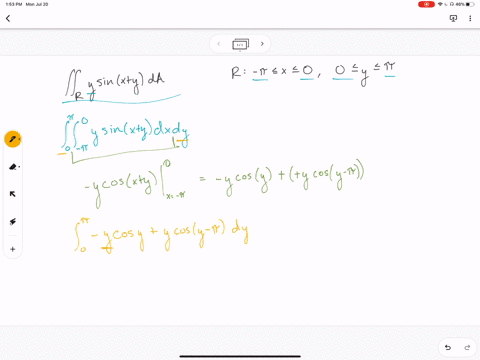 1:53 PM Mon Jul 20
46%
∬_R y sin(x+y) dA
R: -π ≤ x ≤ 0, 0 ≤ y ≤ π
∫_0^π ∫_{-π}^0 y sin(x+y) dx dy
-y cos(x+y) |_{x=-π}^0 = -y cos(y) + (+y cos(y-π))
∫_0^π -y cos y + y cos(y-π) dy